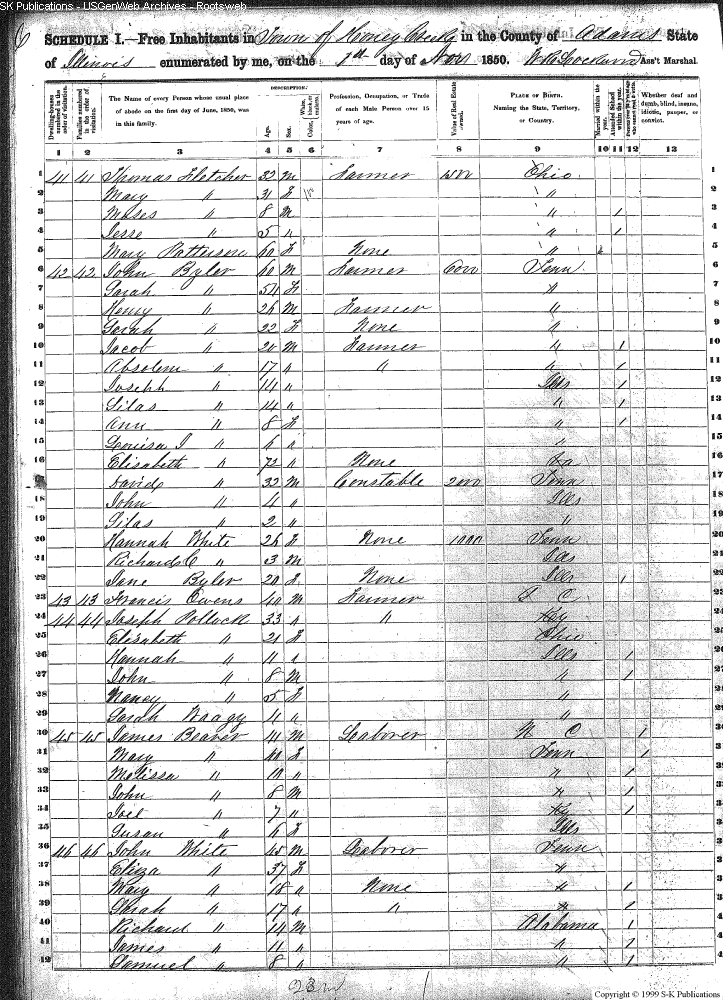 SK Publications - USGenWeb Archives - Rootsweb
SCHEDULE I.—Free Inhabitants in Town of Honey Creek in the County of Adams State
of Illinois enumerated by me, on the day of Nov 1850. Ass't Marshal.
DESCRIPTION.
Dwelling-houses numbered in the order of visitation. Families numbered in the order of visitation. The Name of every Person whose usual place of abode on the first day of June, 1850, was in this family. Age. Sex. Color, Profession, Occupation, or Trade of each Male Person over 15 years of age. Value of Real Estate owned. Place of Birth. Naming the State, Territory, or Country. Married within the year. Attended School within the year. Whether deaf and dumb, blind, insane, idiotic, pauper, or convict.
1 2 3 4 5 6 7 8 9 10 11 12 13
1 41 41 Thomas Fletcher 32 M Farmer Ohio 1
2 Mary " 31 F " 2
3 Moses " 8 M " / 3
4 Jesse " 5 " " / 4
5 Mary Patterson 60 F None " 5
6 42 42 John Byler 60 M Farmer 6000 Tenn 6
7 Sarah " 54 F " 7
8 Henry " 26 M Farmer " 8
9 Sarah " 22 F None " 9
10 Jacob " 20 M Farmer " / 10
11 Absolem " 17 " " " / 11
12 Joseph " 14 " Ills / 12
13 Silas " 14 " " / 13
14 Ann " 8 F " / 14
15 Louisa J " 6 " " 15
16 Elisabeth " 72 " None 16
17 David " 32 M Constable 2000 Tenn 17
18 John " 4 " Ills 18
19 Silas " 2 " " 19
20 Hannah White 26 F None 1000 Tenn 20
21 Richard C " 3 M Ills 21
22 Jane Byler 20 F None Ills / 22
23 43 43 Francis Owens 40 M Farmer S C 23
24 44 44 Joseph Pollock 33 " " Ky 24
25 Elisabeth " 21 F Ohio 25
26 Hannah " 11 " Ills / 26
27 John " 8 M " / 27
28 Nancy " 5 F " 28
29 Sarah 4 " " 29
30 45 45 James Beaver 41 M Laborer N C / 30
31 Mary " 40 F Tenn /
32 Melissa " 10 " " /
33 John " 8 M " /
34 Joel " 7 " Ky /
35 Susan " 6 F Ills
36 46 46 John White 45 M Laborer Tenn
37 Eliza " 37 F "
38 Mary " 18 " None " /
39 Sarah " 17 " " " /
40 Richard " 14 M Alabama /
41 James " 11 " " /
42 Samuel " 8 " " /
Copyright © 1999 S-K Publications